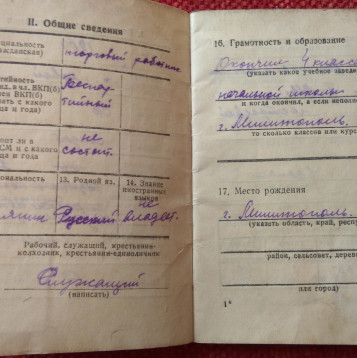 II. Общие сведения
циальность
жданская)
торговый работник
тийность
л. в чл. ВКП(б)
ВКП(б)
ать с какого
ца и года
Беспар
тийный
оит ли в
СМ и с какого
ца и года
не
состоит.
иональность
13. Родной яз.
14. Знание
иностранных
языков
Русский
не
владеет.
Рабочий, служащий, крестьянин-
колхозник, крестьянин-единоличник
Служащий
(написать)
16. Грамотность и образование
Окончил 4 класса
(указать каков учебное завед
начальной школы
и когда окончил, а если непол
г. Мелитополь,
то сколько классов или кур
17. Место рождения
г. Мелитополь.
(указать область, край, респу
район, сельсовет, дерев
или город)
1*